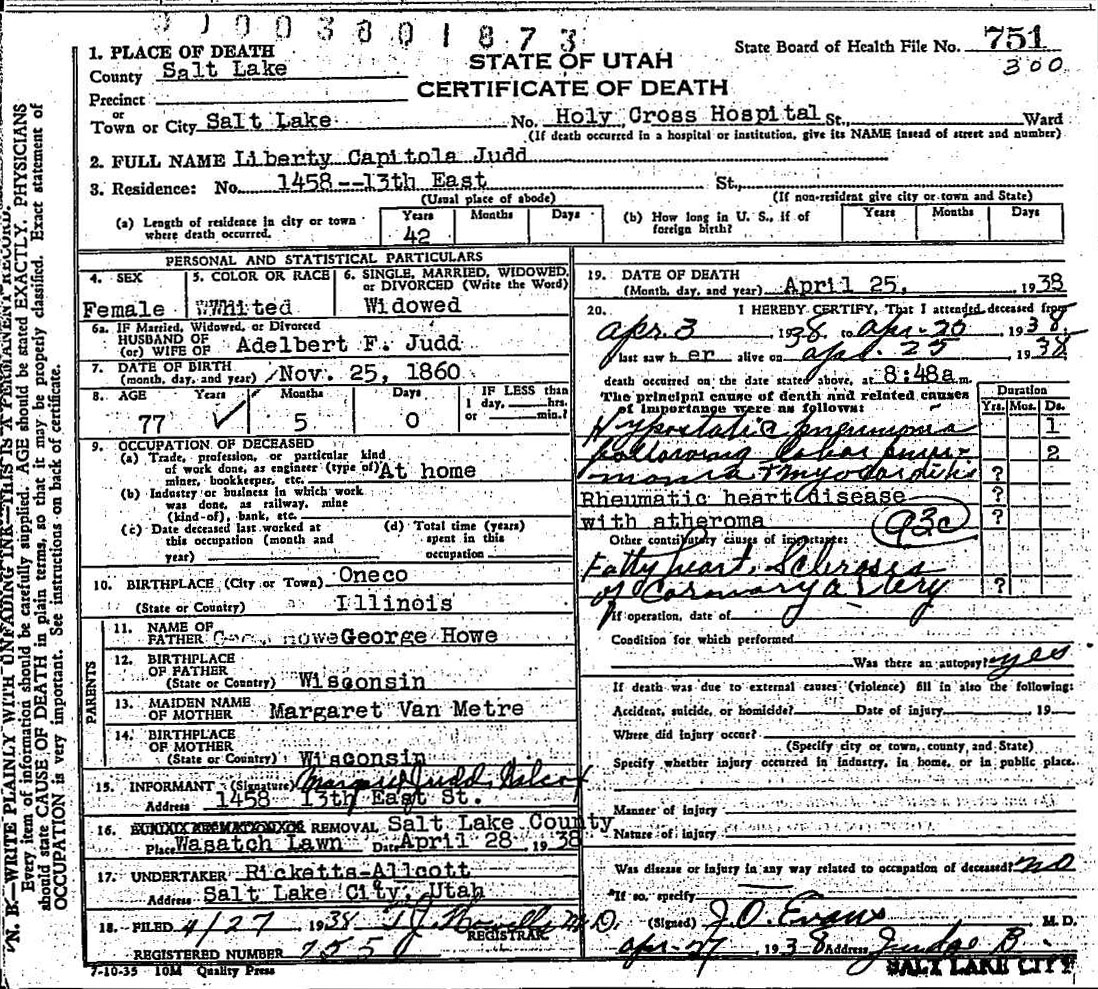 01003801873
1. PLACE OF DEATH
County Salt Lake
Precinct
or
Town or City Salt Lake No. Holy Cross Hospital St., Ward
(If death occurred in a hospital or institution, give its NAME instead of street and number)
STATE OF UTAH
CERTIFICATE OF DEATH
State Board of Health File No. 751
300
2. FULL NAME Liberty Capitola Judd
3. Residence: No. 1458--13th East St.,
(Usual place of abode) (If non-resident give city or town and State)
(a) Length of residence in city or town where death occurred. Years 42 Months Days
(b) How long in U. S., if of foreign birth? Years Months Days
PERSONAL AND STATISTICAL PARTICULARS
4. SEX Female
5. COLOR OR RACE WWhited
6. SINGLE, MARRIED, WIDOWED, or DIVORCED (Write the Word) Widowed
6a. IF Married, Widowed, or Divorced
HUSBAND OF
(or) WIFE OF Adelbert F. Judd
7. DATE OF BIRTH
(month, day, and year) Nov. 25, 1860
8. AGE 77 Years 5 Months 0 Days
IF LESS than
1 day, hrs.
or min.?
9. OCCUPATION OF DECEASED
(a) Trade, profession, or particular kind
of work done, as engineer (type of)
miner, bookkeeper, etc. At home
(b) Industry or business in which work
was done, as railway, mine
(kind-of), bank, etc.
(c) Date deceased last worked at
this occupation (month and
year)
(d) Total time (years)
spent in this
occupation
10. BIRTHPLACE (City or Town) Oneco
(State or Country) Illinois
PARENTS
11. NAME OF
FATHER George Howe
12. BIRTHPLACE
OF FATHER
(State or Country) Wisconsin
13. MAIDEN NAME
OF MOTHER Margaret Van Metre
14. BIRTHPLACE
OF MOTHER
(State or Country) Wisconsin
15. INFORMANT (Signature) Judd Wilcox
Address 1458 13th East St.
16. BURIAL CREMATION OR REMOVAL Salt Lake County
Place Wasatch Lawn Date April 28 1938
17. UNDERTAKER Ricketts-Allcott
Address Salt Lake City, Utah
18. FILED 4/27 1938 T.J. Howells M.D.
REGISTRAR
REGISTERED NUMBER 755
7-10-35 10M Quality Press
19. DATE OF DEATH
(Month, day, and year) April 25, 1938
20. I HEREBY CERTIFY, That I attended deceased from
Apr. 3 1938 to Apr-25 1938.
last saw her alive on Apr. 25 1938
death occurred on the date stated above, at 8:48a m.
The principal cause of death and related causes
of importance were as follows:
Duration
Yrs. Mos. Ds.
Hypostatic pneumonia 1
following lobar pneu- 2
monia + myocarditis ?
Rheumatic heart disease ?
with atheroma ?
93c
Other contributory causes of importance:
Fatty heart, Sclerosis
of Coronary artery ?
If operation, date of
Condition for which performed
Was there an autopsy? yes
If death was due to external causes (violence) fill in also the following:
Accident, suicide, or homicide? Date of injury 19
Where did injury occur?
(Specify city or town, county, and State)
Specify whether injury occurred in industry, in home, or in public place.
Manner of injury
Nature of injury
Was disease or injury in any way related to occupation of deceased? no
If so, specify
(Signed) J. O. Evans M. D.
Apr-27 1938 Address Judge B.
SALT LAKE CITY
N. B.—WRITE PLAINLY WITH UNFADING INK—THIS IS A PERMANENT RECORD.
Every item of information should be carefully supplied. AGE should be stated EXACTLY. PHYSICIANS
should state CAUSE OF DEATH in plain terms, so that it may be properly classified. Exact statement of
OCCUPATION is very important. See instructions on back of certificate.